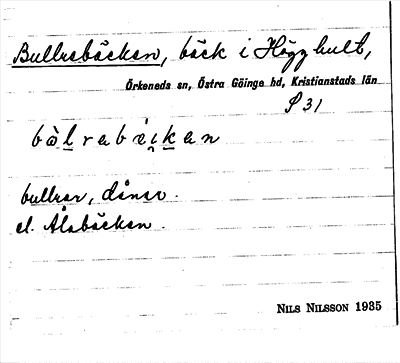 Bullrebäcken, bäck i Högghult,
Örkeneds sn, Östra Göinge hd, Kristianstads län
S 31
bòlrabæ̀kan
bullrar, dånar.
el. Ålabäcken.
NILS NILSSON 1935